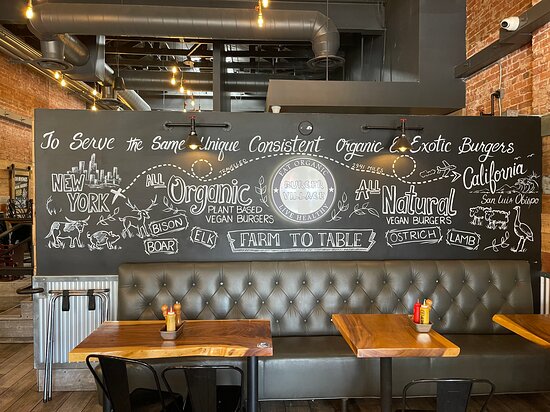 To Serve the Same Unique Consistent Organic & Exotic Burgers
NEW YORK
ALL
Organic
PLANT BASED
VEGAN BURGERS
BISON
BOAR
ELK
EAT ORGANIC
BURGER
VILLAGE
LIVE HEALTHY
FARM TO TABLE
All
Natural
VEGAN BURGERS
OSTRICH
LAMB
California
San Luis Obispo